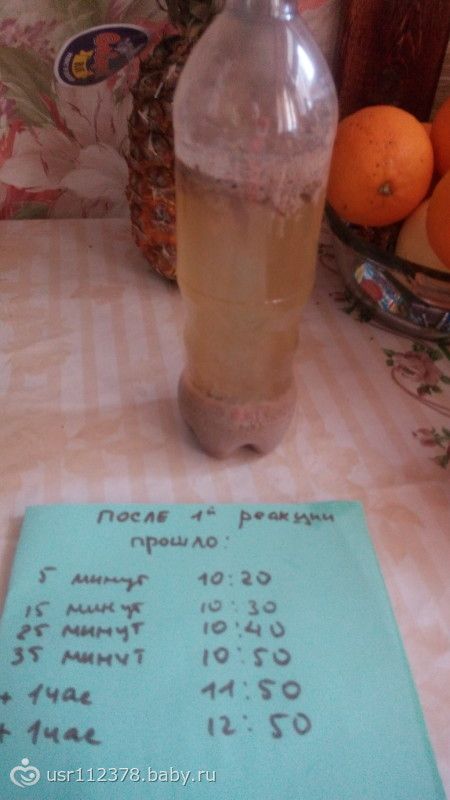 ПОСЛЕ 1й реакции
прошло:
5 минут 10:20
15 минут 10:30
25 минут 10:40
35 минут 10:50
+ 1час 11:50
+ 1час 12:50
usr112378.baby.ru